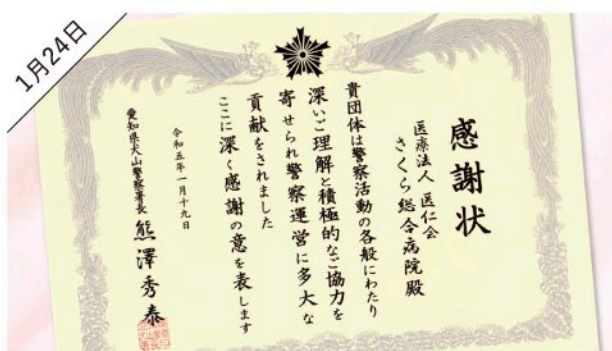 1月24日
感謝状
医療法人 医仁会
さくら総合病院 殿
貴団体は警察活動の各般にわたり
深いご理解と積極的なご協力を
寄せられ警察運営に多大な
貢献をされました
ここに深く感謝の意を表します
令和五年一月十九日
愛知県犬山警察署長 熊澤秀泰